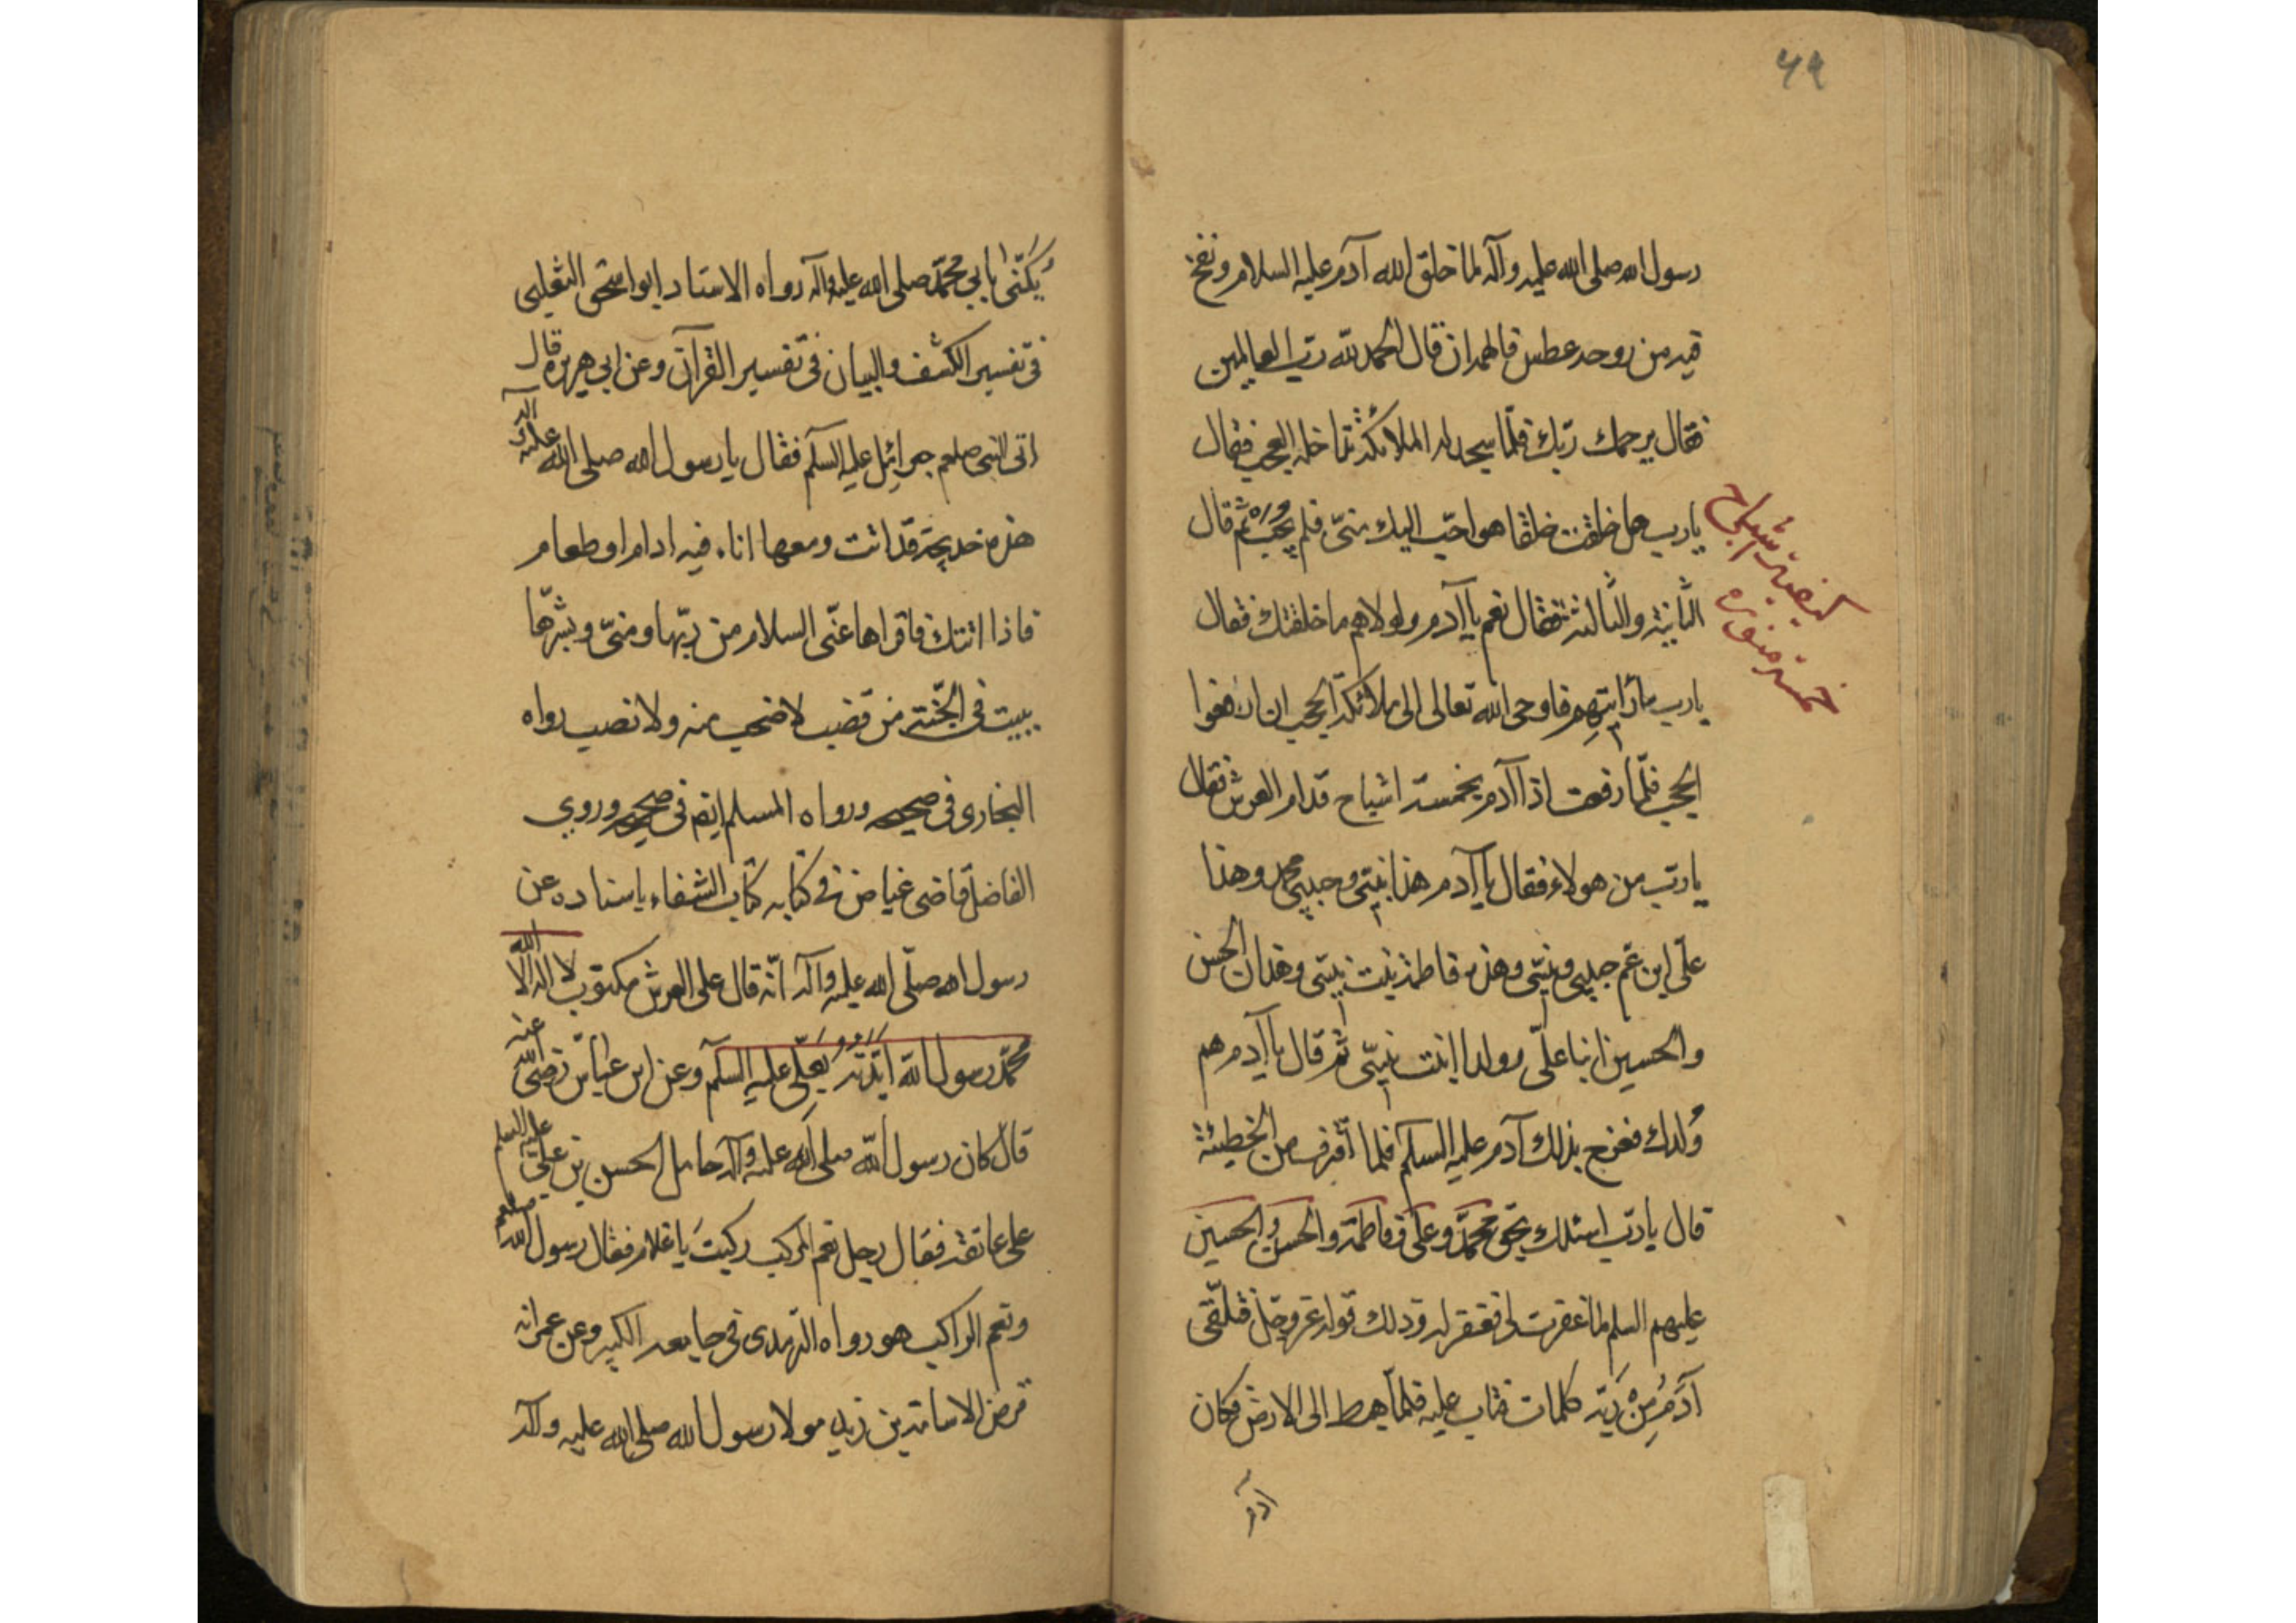 ۴۹
رسول الله صلى الله عليه وآله لما خلق الله آدم عليه السلام ونفخ
فيه من روحه عطس فالهمه ان قال الحمد لله رب العالمين
فقال يرحمك ربك فلما سجد له الملائكة تداخله العجب فقال
يا رب هل خلقت خلقا هو احب اليك منى فلم يجب ثم قال
الثانية والثالثة فقال نعم يا آدم ولولاهم ما خلقتك فقال
يا رب فأرنيهم فاوحى الله تعالى الى ملائكة الحجب ان ارفعوا
الحجب فلما رفعت اذا آدم بخمسة اشباح قدام العرش فقال
يا رب من هولاء فقال يا آدم هذا نبيى وحبيبى محمد وهذا
على ابن عم حبيبى ونبيى وهذه فاطمة بنت نبيى وهذان الحسن
والحسين ابنا على وولدا بنت نبيى ثم قال يا آدم هم
وُلدك ففرح بذلك آدم عليه السلام فلما اقترف من الخطيئة
قال يا رب اسئلك بحق محمد وعلى وفاطمة والحسن والحسين
عليهم السلم لما غفرت لى فغفر له وذلك قوله عز وجل فتلقى
آدَمُ مِنْ رَبِّه كلمات فتاب عليه فلما هبط الى الارض فكان
آدم
خمسة منوره
يُكَنّى بابى محمد صلى الله عليه وآله رواه الاستاد ابو اسحق الثعلبى
فى تفسير الكشف والبيان فى تفسير القرآن وعن ابى هريره قال
اتى النبى صلعم جبرائيل عليه السلم فقال يا رسول الله صلى الله عليك وآله
هذه خديجة قد اتت ومعها اناء فيه ادام او طعام
فاذا اتتك فاقراها عنى السلام من ربها ومنى وبشرها
ببيت فى الجنة من قضب لا ضحب منه ولا نصب رواه
البخارى فى صحيحه ورواه المسلم ايضا فى صحيحه وروى
الفاضل قاضى غياض فى كتابه كتاب الشفاء باسناده عن
رسول الله صلى الله عليه وآله انه قال على العرش مكتوب لا اله الا الله
محمد رسول الله ايّدته بعلى عليه السلم وعن ابن عباس رضى الله عنه
قال كان رسول الله صلى الله عليه وآله حامل الحسن بن على عليه السلم
على عاتقه فقال رجل نعم المركب ركبت يا غلام فقال رسول الله صلعم
ونعم الراكب هو رواه الترمدى فى جامعه الكبير وعن عمر انه
فرض لاسامة بن زيد مولا رسول الله صلى الله عليه وآله